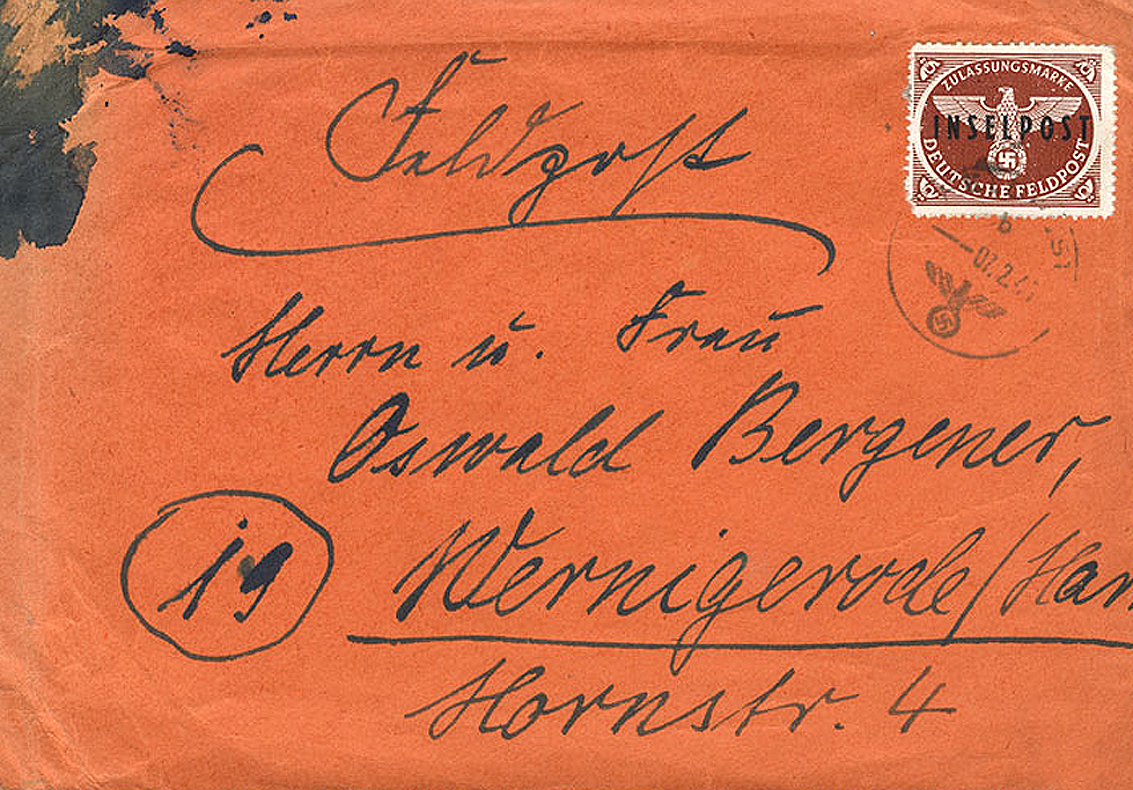 Feldpost
ZULASSUNGSMARKE
INSELPOST
DEUTSCHE FELDPOST
b
07.2.4
Herrn u. Frau
Oswald Bergener,
19
Wernigerode/Har
Hornstr. 4